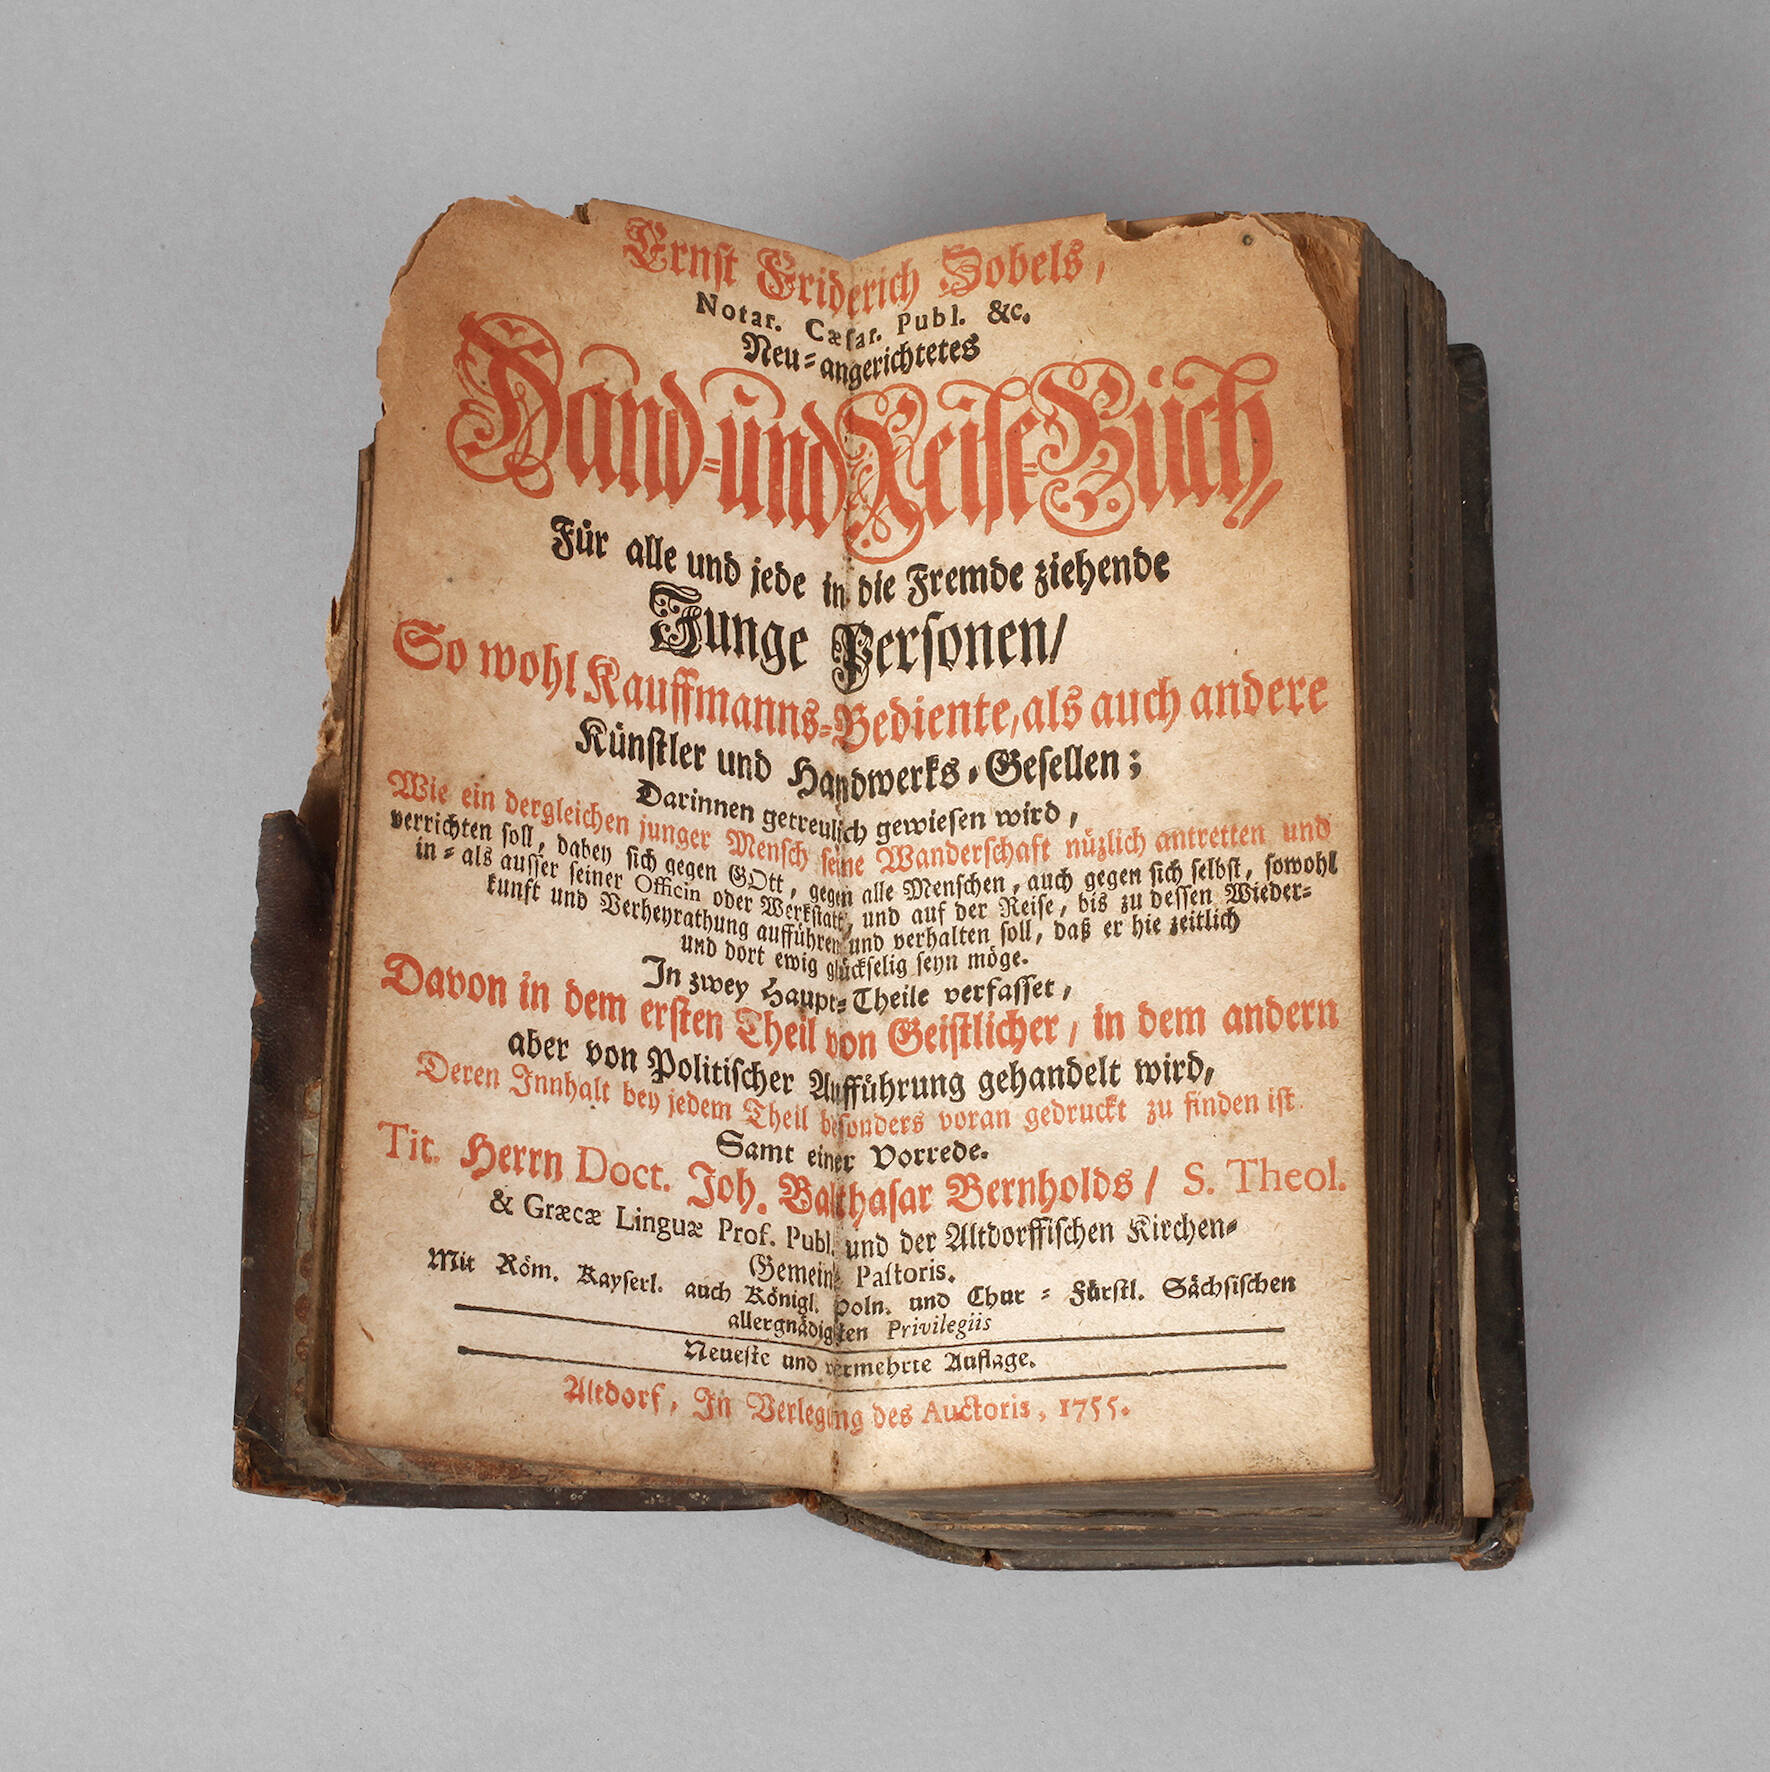 Ernst Friderich Zobels,
Notar. Cæſar. Publ. &c.
Neu-angerichtetes
Hand-und Reise-Buch,
Für alle und jede in die Fremde ziehende
Junge Personen/
So wohl Kauffmanns-Bediente, als auch andere
Künstler und Handwerks-Gesellen;
Darinnen getreulich gewiesen wird,
Wie ein dergleichen junger Mensch seine Wanderschaft nüzlich antretten und
verrichten soll, dabey sich gegen GOtt, gegen alle Menschen, auch gegen sich selbst, sowohl
in- als ausser seiner Officin oder Werkstatt, und auf der Reise, bis zu dessen Wieder-
kunft und Verheyrathung aufführen und verhalten soll, daß er hie zeitlich
und dort ewig glückselig seyn möge.
In zwey Haupt-Theile verfasset,
Davon in dem ersten Theil von Geistlicher, in dem andern
aber von Politischer Aufführung gehandelt wird,
Deren Innhalt bey jedem Theil besonders voran gedruckt zu finden ist.
Samt einer Vorrede.
Tit. Herrn Doct. Joh. Balthasar Bernholds/ S. Theol.
& Græcæ Linguæ Prof. Publ. und der Altdorffischen Kirchen-
Gemeine Pastoris.
Mit Röm. Kayserl. auch Königl. Poln. und Chur-Fürstl. Sächsischen
allergnädigsten Privilegiis
Neueste und vermehrte Auflage.
Altdorf, In Verlegung des Auctoris, 1755.